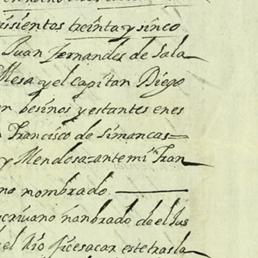 isientos treinta y sinco
Juan Fernandes de Sala
Mesa y el Capitan Diego
n besinos y estantes en es
n Francisco de Simancas =
y Mendosa zante mi Fran
no nombrado
scriuano nanbrado de el Jus
el Rio fice sacar este trasla